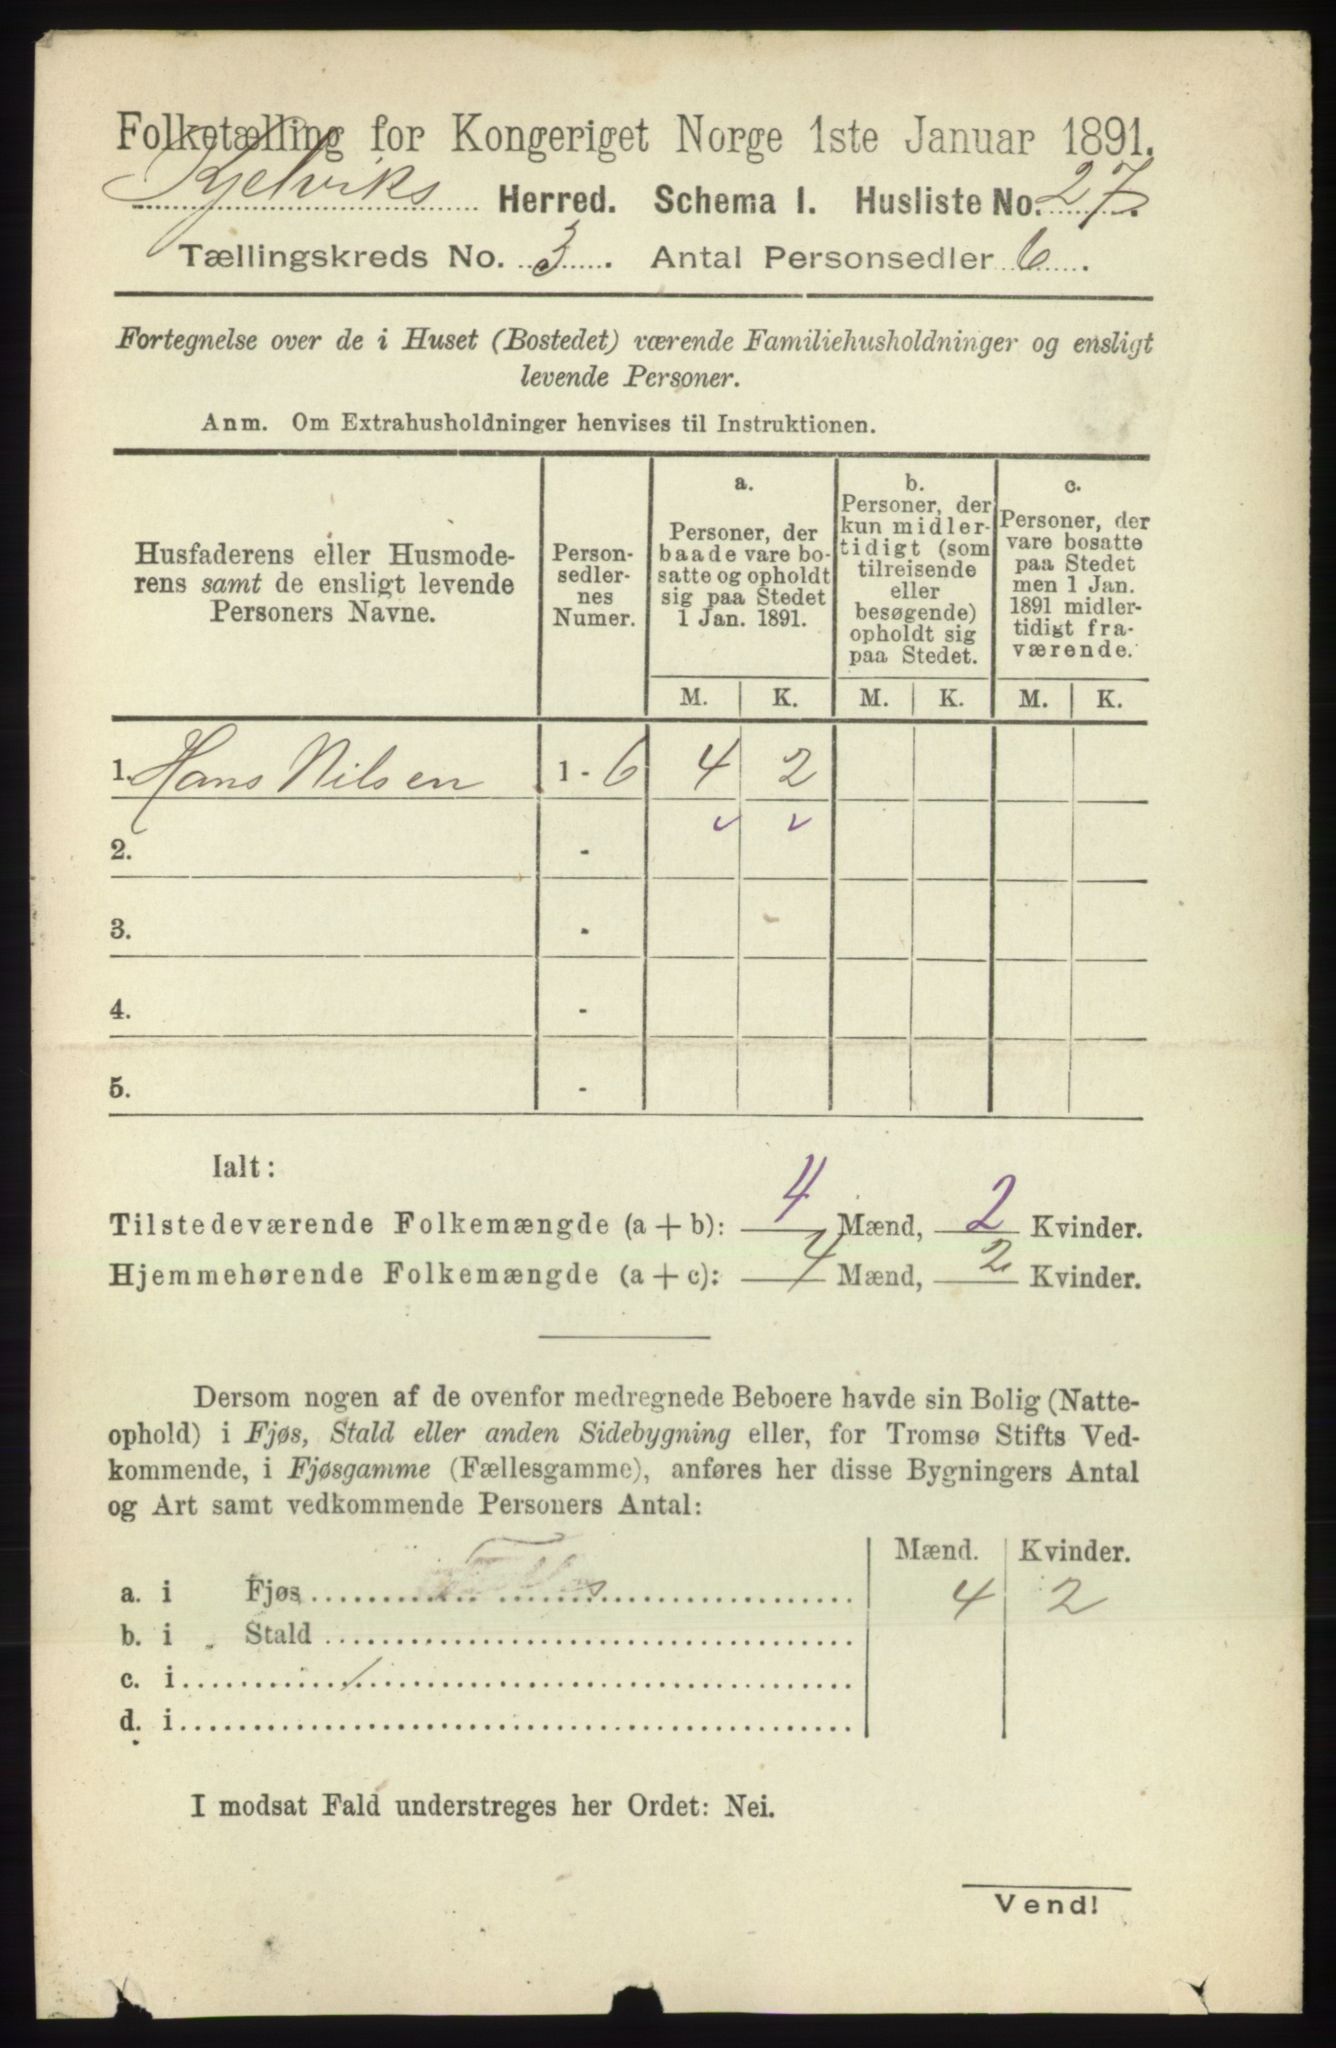 Folketælling for Kongeriget Norge 1ste Januar 1891.
Kjelviks Herred. Schema I. Husliste No. 27.
Tællingskreds No. 3. Antal Personsedler 6.
Fortegnelse over de i Huset (Bostedet) værende Familiehusholdninger og ensligt
levende Personer.
Anm. Om Extrahusholdninger henvises til Instruktionen.
Husfaderens eller Husmode-
rens samt de ensligt levende
Personers Navne.
Person-
sedler-
nes
Numer.
a.
Personer, der
baade vare bo-
satte og opholdt
sig paa Stedet
1 Jan. 1891.
b.
Personer, der
kun midler-
tidigt (som
tilreisende
eller
besøgende)
opholdt sig
paa Stedet.
c.
Personer, der
vare bosatte
paa Stedet
men 1 Jan.
1891 midler-
tidigt fra-
værende.
M. K. M. K. M. K.
1. Hans Nilsen 1 - 6 4 2
2. -
3. -
4. -
5. -
Ialt:
Tilstedeværende Folkemængde (a + b): 4 Mænd, 2 Kvinder.
Hjemmehørende Folkemængde (a + c): 4 Mænd, 2 Kvinder.
Dersom nogen af de ovenfor medregnede Beboere havde sin Bolig (Natte-
ophold) i Fjøs, Stald eller anden Sidebygning eller, for Tromsø Stifts Ved-
kommende, i Fjøsgamme (Fællesgamme), anføres her disse Bygningers Antal
og Art samt vedkommende Personers Antal:
Mænd. Kvinder.
a. i Fjøs 4 2
b. i „ Stald
c. i
d. i
I modsat Fald understreges her Ordet: Nei.
Vend!